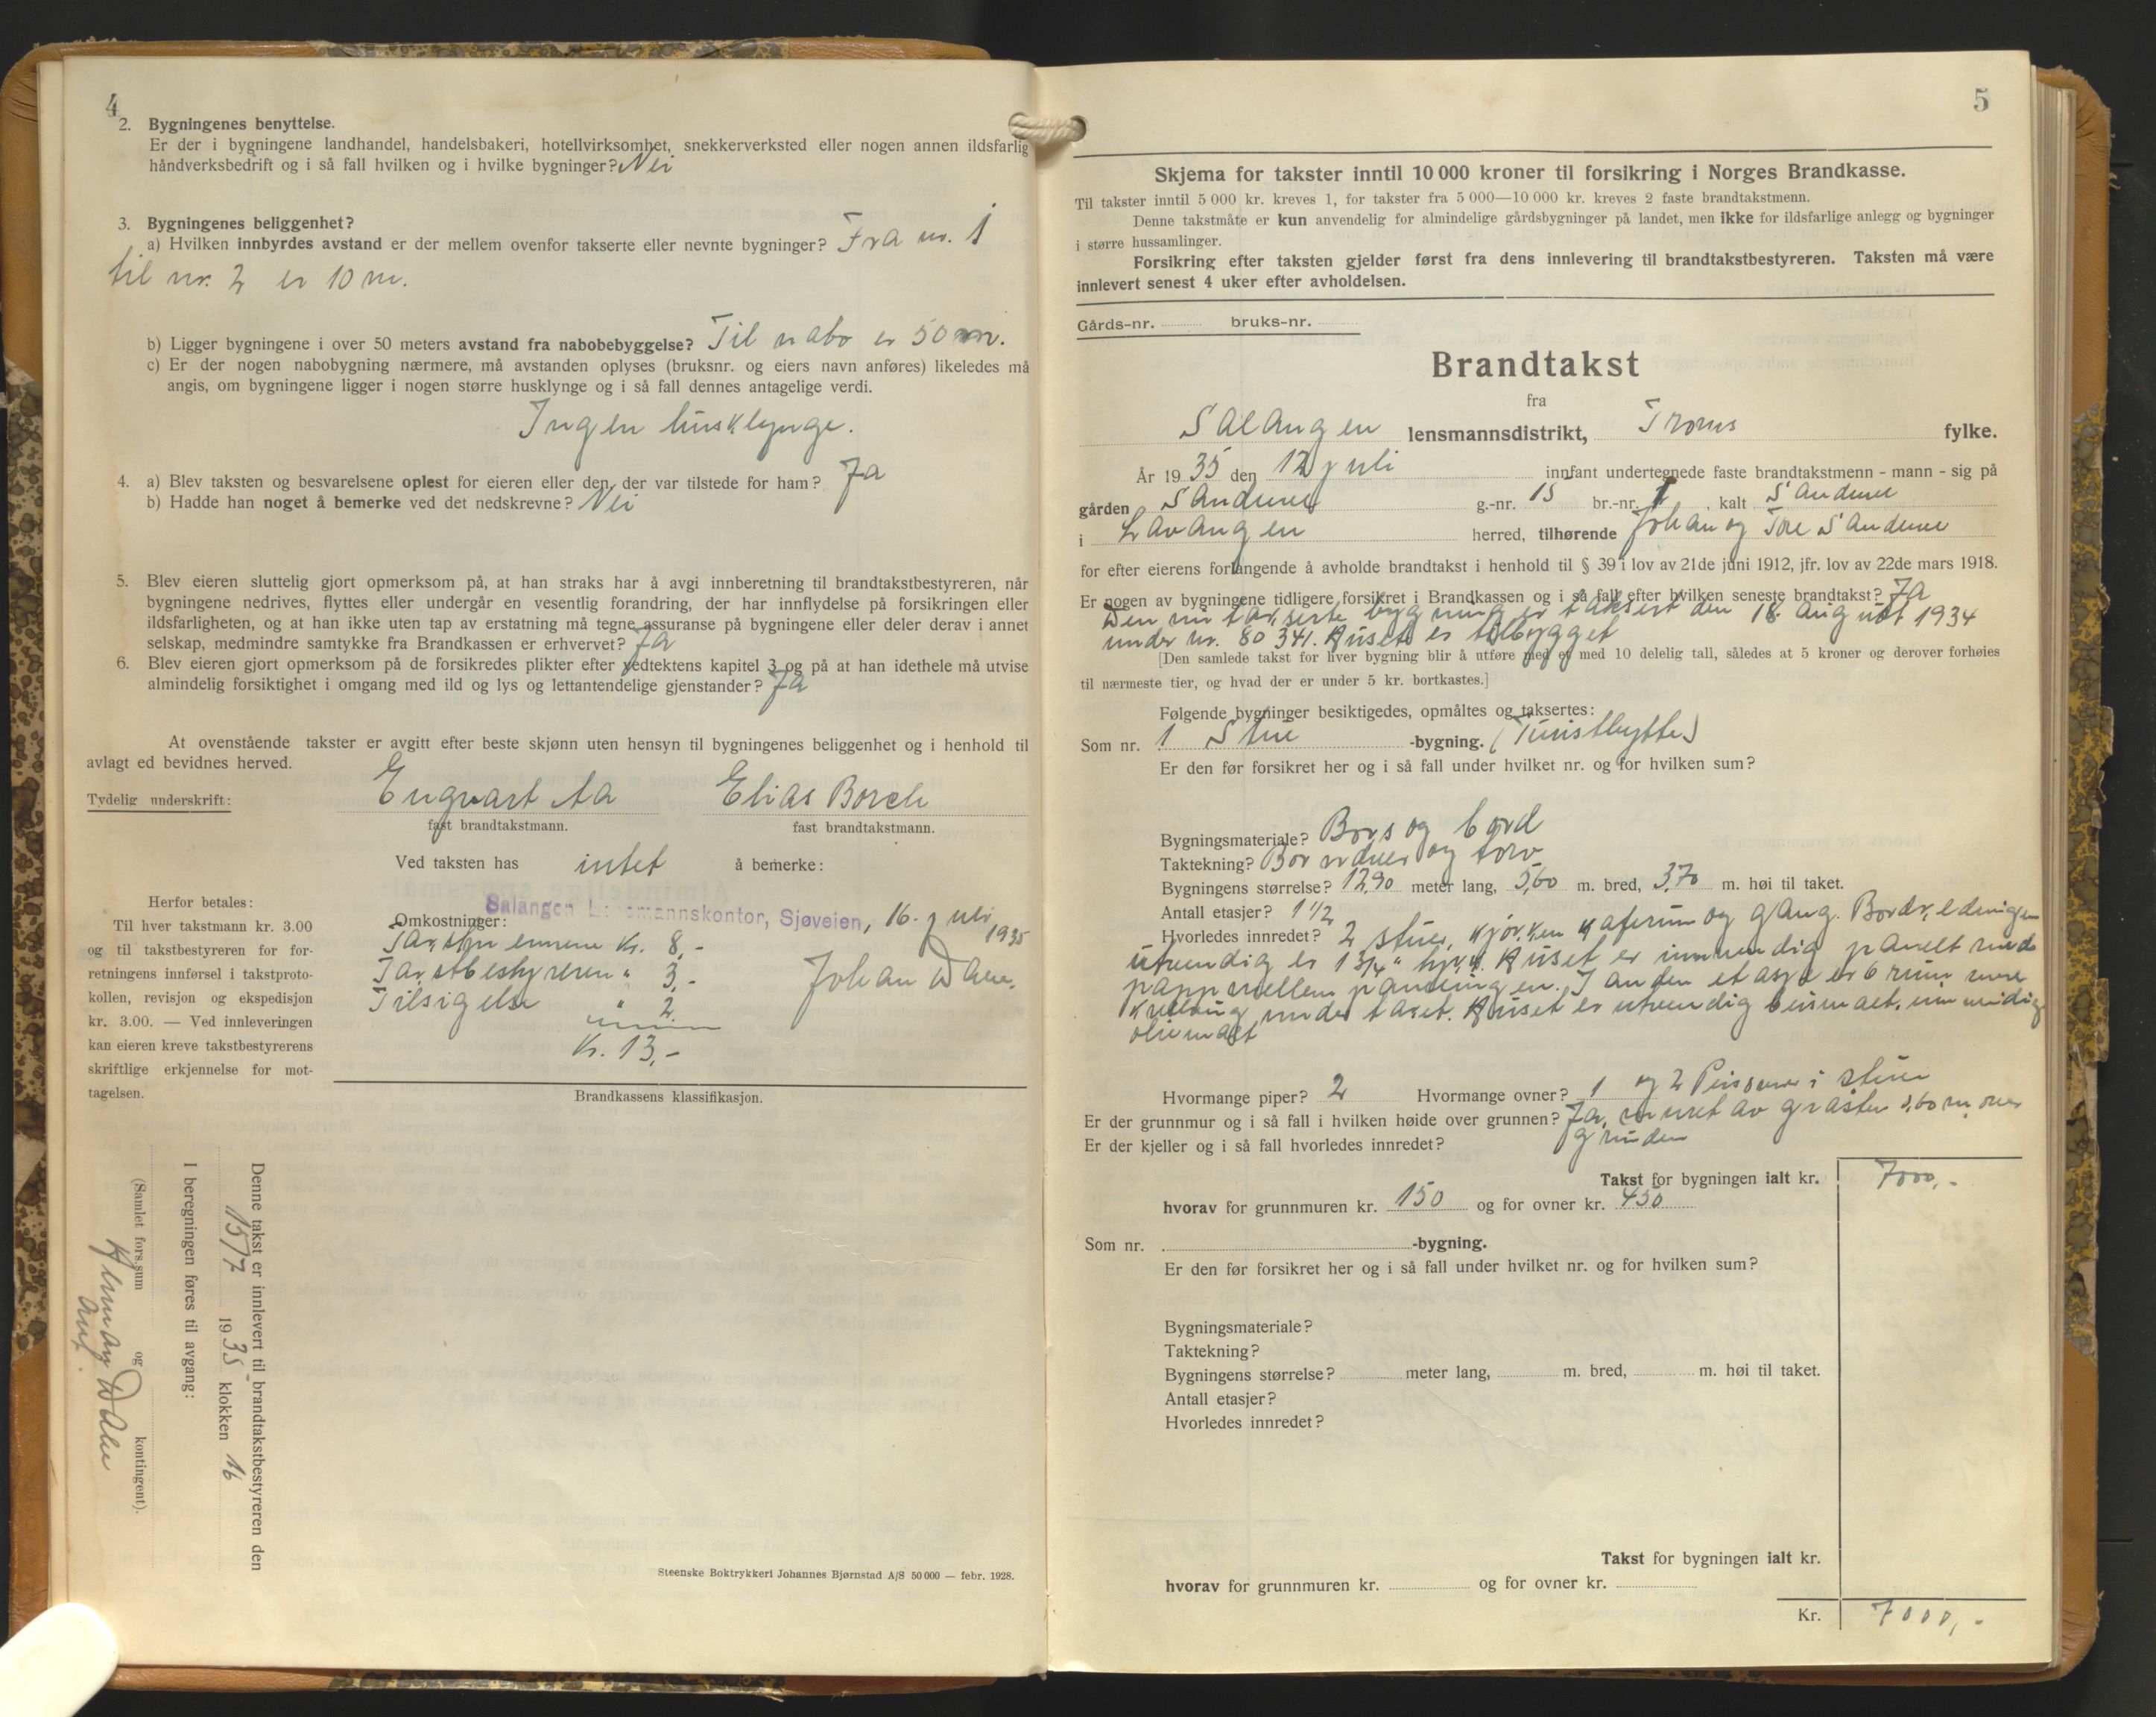 4
2. Bygningenes benyttelse.
Er der i bygningene landhandel, handelsbakeri, hotellvirksomhet, snekkerverksted eller nogen annen ildsfarlig
håndverksbedrift og i så fall hvilken og i hvilke bygninger? Nei
3. Bygningenes beliggenhet?
a) Hvilken innbyrdes avstand er der mellem ovenfor takserte eller nevnte bygninger? Fra nr. 1
til nr. 2 er 10 m.
b) Ligger bygningene i over 50 meters avstand fra nabobebyggelse? Til nabo er 50 m.
c) Er der nogen nabobygning nærmere, må avstanden oplyses (bruksnr. og eiers navn anføres) likeledes må
angis, om bygningene ligger i nogen større husklynge og i så fall dennes antagelige verdi.
Ingen husklynge.
4. a) Blev taksten og besvarelsene oplest for eieren eller den, der var tilstede for ham? Ja
b) Hadde han noget å bemerke ved det nedskrevne? Nei
5. Blev eieren sluttelig gjort opmerksom på, at han straks har å avgi innberetning til brandtakstbestyreren, når
bygningene nedrives, flyttes eller undergår en vesentlig forandring, der har innflydelse på forsikringen eller
ildsfarligheten, og at han ikke uten tap av erstatning må tegne assuranse på bygningene eller deler derav i annet
selskap, medmindre samtykke fra Brandkassen er erhvervet? Ja
6. Blev eieren gjort opmerksom på de forsikredes plikter efter vedtektens kapitel 3 og på at han idethele må utvise
almindelig forsiktighet i omgang med ild og lys og lettantendelige gjenstander? Ja
At ovenstående takster er avgitt efter beste skjønn uten hensyn til bygningenes beliggenhet og i henhold til
avlagt ed bevidnes herved.
Tydelig underskrift: Engvart Aa Elias Borch
fast brandtakstmann. fast brandtakstmann.
Ved taksten has intet å bemerke:
Salangen Lensmannskontor, Sjøveien, 16. juli 1935
Johan Dale.
Omkostninger:
Takstmennene Kr. 8,-
Takstbestyreren " 3,-
Tilsigelse " 2.
Kr. 13,-
Herfor betales:
Til hver takstmann kr. 3.00
og til takstbestyreren for for-
retningens innførsel i takstproto-
kollen, revisjon og ekspedisjon
kr. 3.00. — Ved innleveringen
kan eieren kreve takstbestyrerens
skriftlige erkjennelse for mot-
tagelsen.
Brandkassens klassifikasjon.
Denne takst er innlevert til brandtakstbestyreren den
15/7 1935 klokken 16
I beregningen føres til avgang:
(Samlet fors.sum og kontingent).
Dale
Steenske Boktrykkeri Johannes Bjørnstad A/S 50 000 — febr. 1928.
5
Skjema for takster inntil 10 000 kroner til forsikring i Norges Brandkasse.
Til takster inntil 5 000 kr. kreves 1, for takster fra 5 000—10 000 kr. kreves 2 faste brandtakstmenn.
Denne takstmåte er kun anvendelig for almindelige gårdsbygninger på landet, men ikke for ildsfarlige anlegg og bygninger
i større hussamlinger.
Forsikring efter taksten gjelder først fra dens innlevering til brandtakstbestyreren. Taksten må være
innlevert senest 4 uker efter avholdelsen.
Gårds-nr. bruks-nr.
Brandtakst
fra
Salangen lensmannsdistrikt, Troms fylke.
År 1935 den 12 juli innfant undertegnede faste brandtakstmenn - mann - sig på
gården Sandene g.-nr. 15 br.-nr. 1, kalt Sandene
i Lavangen herred, tilhørende Johan og Tore Sandene
for efter eierens forlangende å avholde brandtakst i henhold til § 39 i lov av 21de juni 1912, jfr. lov av 22de mars 1918.
Er nogen av bygningene tidligere forsikret i Brandkassen og i så fall efter hvilken seneste brandtakst? Ja
Den nu takserte bygning er taksert den 18. august 1934
under nr. 80341. Huset er tilbygget
[Den samlede takst for hver bygning blir å utføre med et med 10 delelig tall, således at 5 kroner og derover forhøies
til nærmeste tier, og hvad der er under 5 kr. bortkastes.]
Følgende bygninger besiktigedes, opmåltes og taksertes:
Som nr. 1 Stue -bygning. (Turisthytte)
Er den før forsikret her og i så fall under hvilket nr. og for hvilken sum?
Bygningsmateriale? Bors og bord
Taktekning? Bor never og torv
Bygningens størrelse? 12,90 meter lang, 5,60 m. bred, 3,70 m. høi til taket.
Antall etasjer? 1 1/2
Hvorledes innredet? 2 stuer, kjøkken kaferum og gang. Bordkledningen
utvendig er 1 3/4" tykk. Huset er innvendig panelt med
papp mellem panelingen. I anden etasje er 6 rum med
kvelving under taket. Huset er utvendig beismalt, innvendig
oliemalt
Hvormange piper? 2 Hvormange ovner? 1 og 2 Peisovner i stuer
Er der grunnmur og i så fall i hvilken høide over grunnen? Ja, muret av gråsten 0,60 m over
grunden
Er der kjeller og i så fall hvorledes innredet?
Takst for bygningen ialt kr. 7000,-
hvorav for grunnmuren kr. 150 og for ovner kr. 450
Som nr. -bygning.
Er den før forsikret her og i så fall under hvilket nr. og for hvilken sum?
Bygningsmateriale?
Taktekning?
Bygningens størrelse? meter lang, m. bred, m. høi til taket.
Antall etasjer?
Hvorledes innredet?
Takst for bygningen ialt kr.
hvorav for grunnmuren kr. og for ovner kr.
Kr. 7000,-